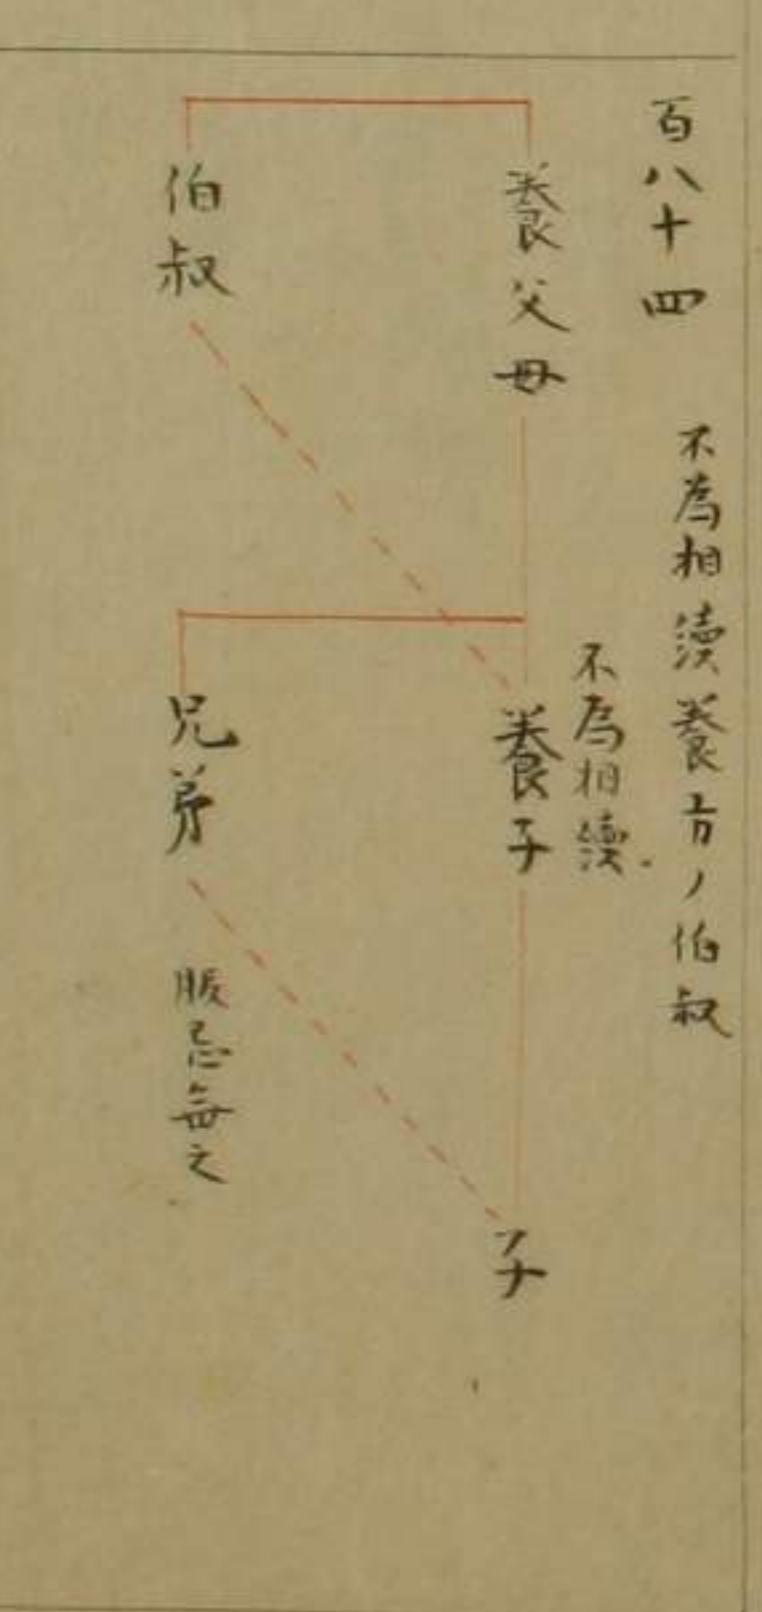 百八十四
不為相續養方ノ伯叔
養父母
不為相續
養子
子
伯叔
兄弟
服忌無之